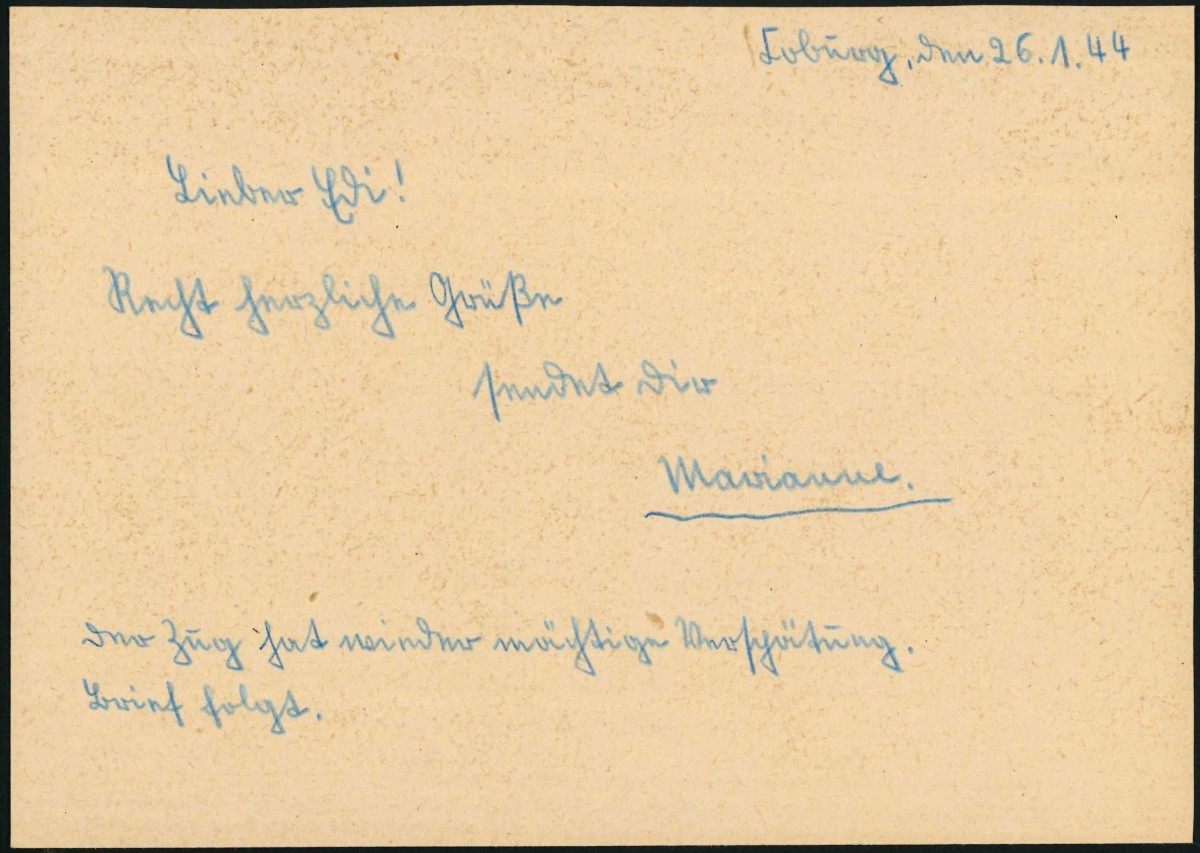 Coburg, den 26.1.44
Lieber Edi!
Recht herzliche Grüße
sendet Dir
Marianne.
der Zug hat wieder mächtige Verspätung.
Brief folgt.